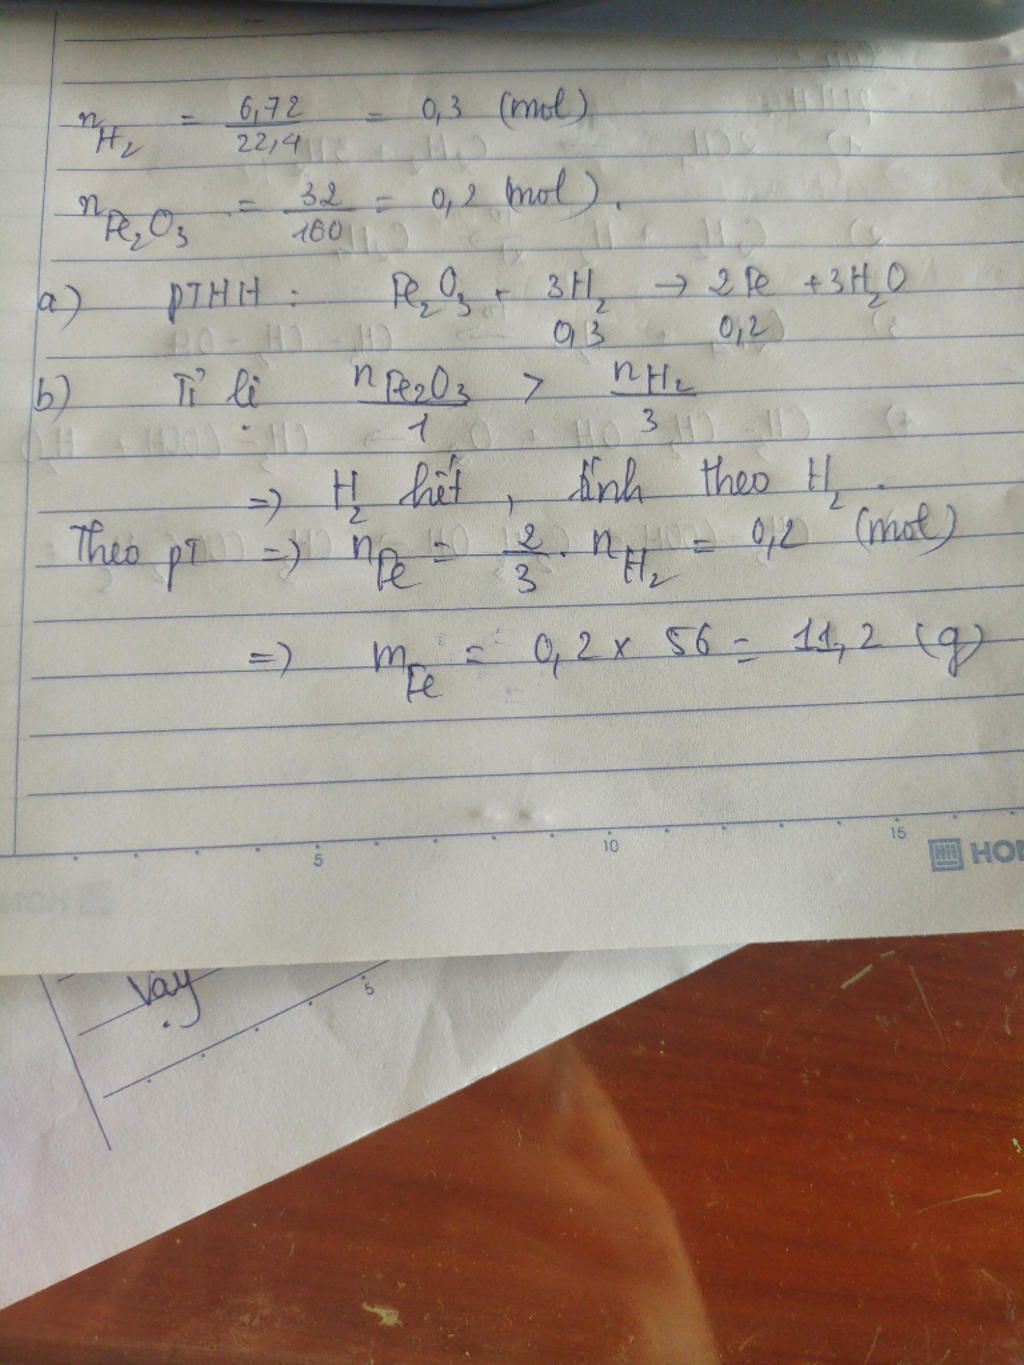 nH₂ = 6,72/22,4 = 0,3 (mol)
nFe₂O₃ = 32/160 = 0,2 (mol).
a) PTHH: Fe₂O₃ + 3H₂ → 2Fe + 3H₂O
0,3 0,2
b) Tỉ lệ nFe₂O₃/1 > nH₂/3
=> H₂ hết, tính theo H₂.
Theo pT => nFe = 2/3 . nH₂ = 0,2 (mol)
=> mFe = 0,2 x 56 = 11,2 (g)
5 10 15
Vậy
5